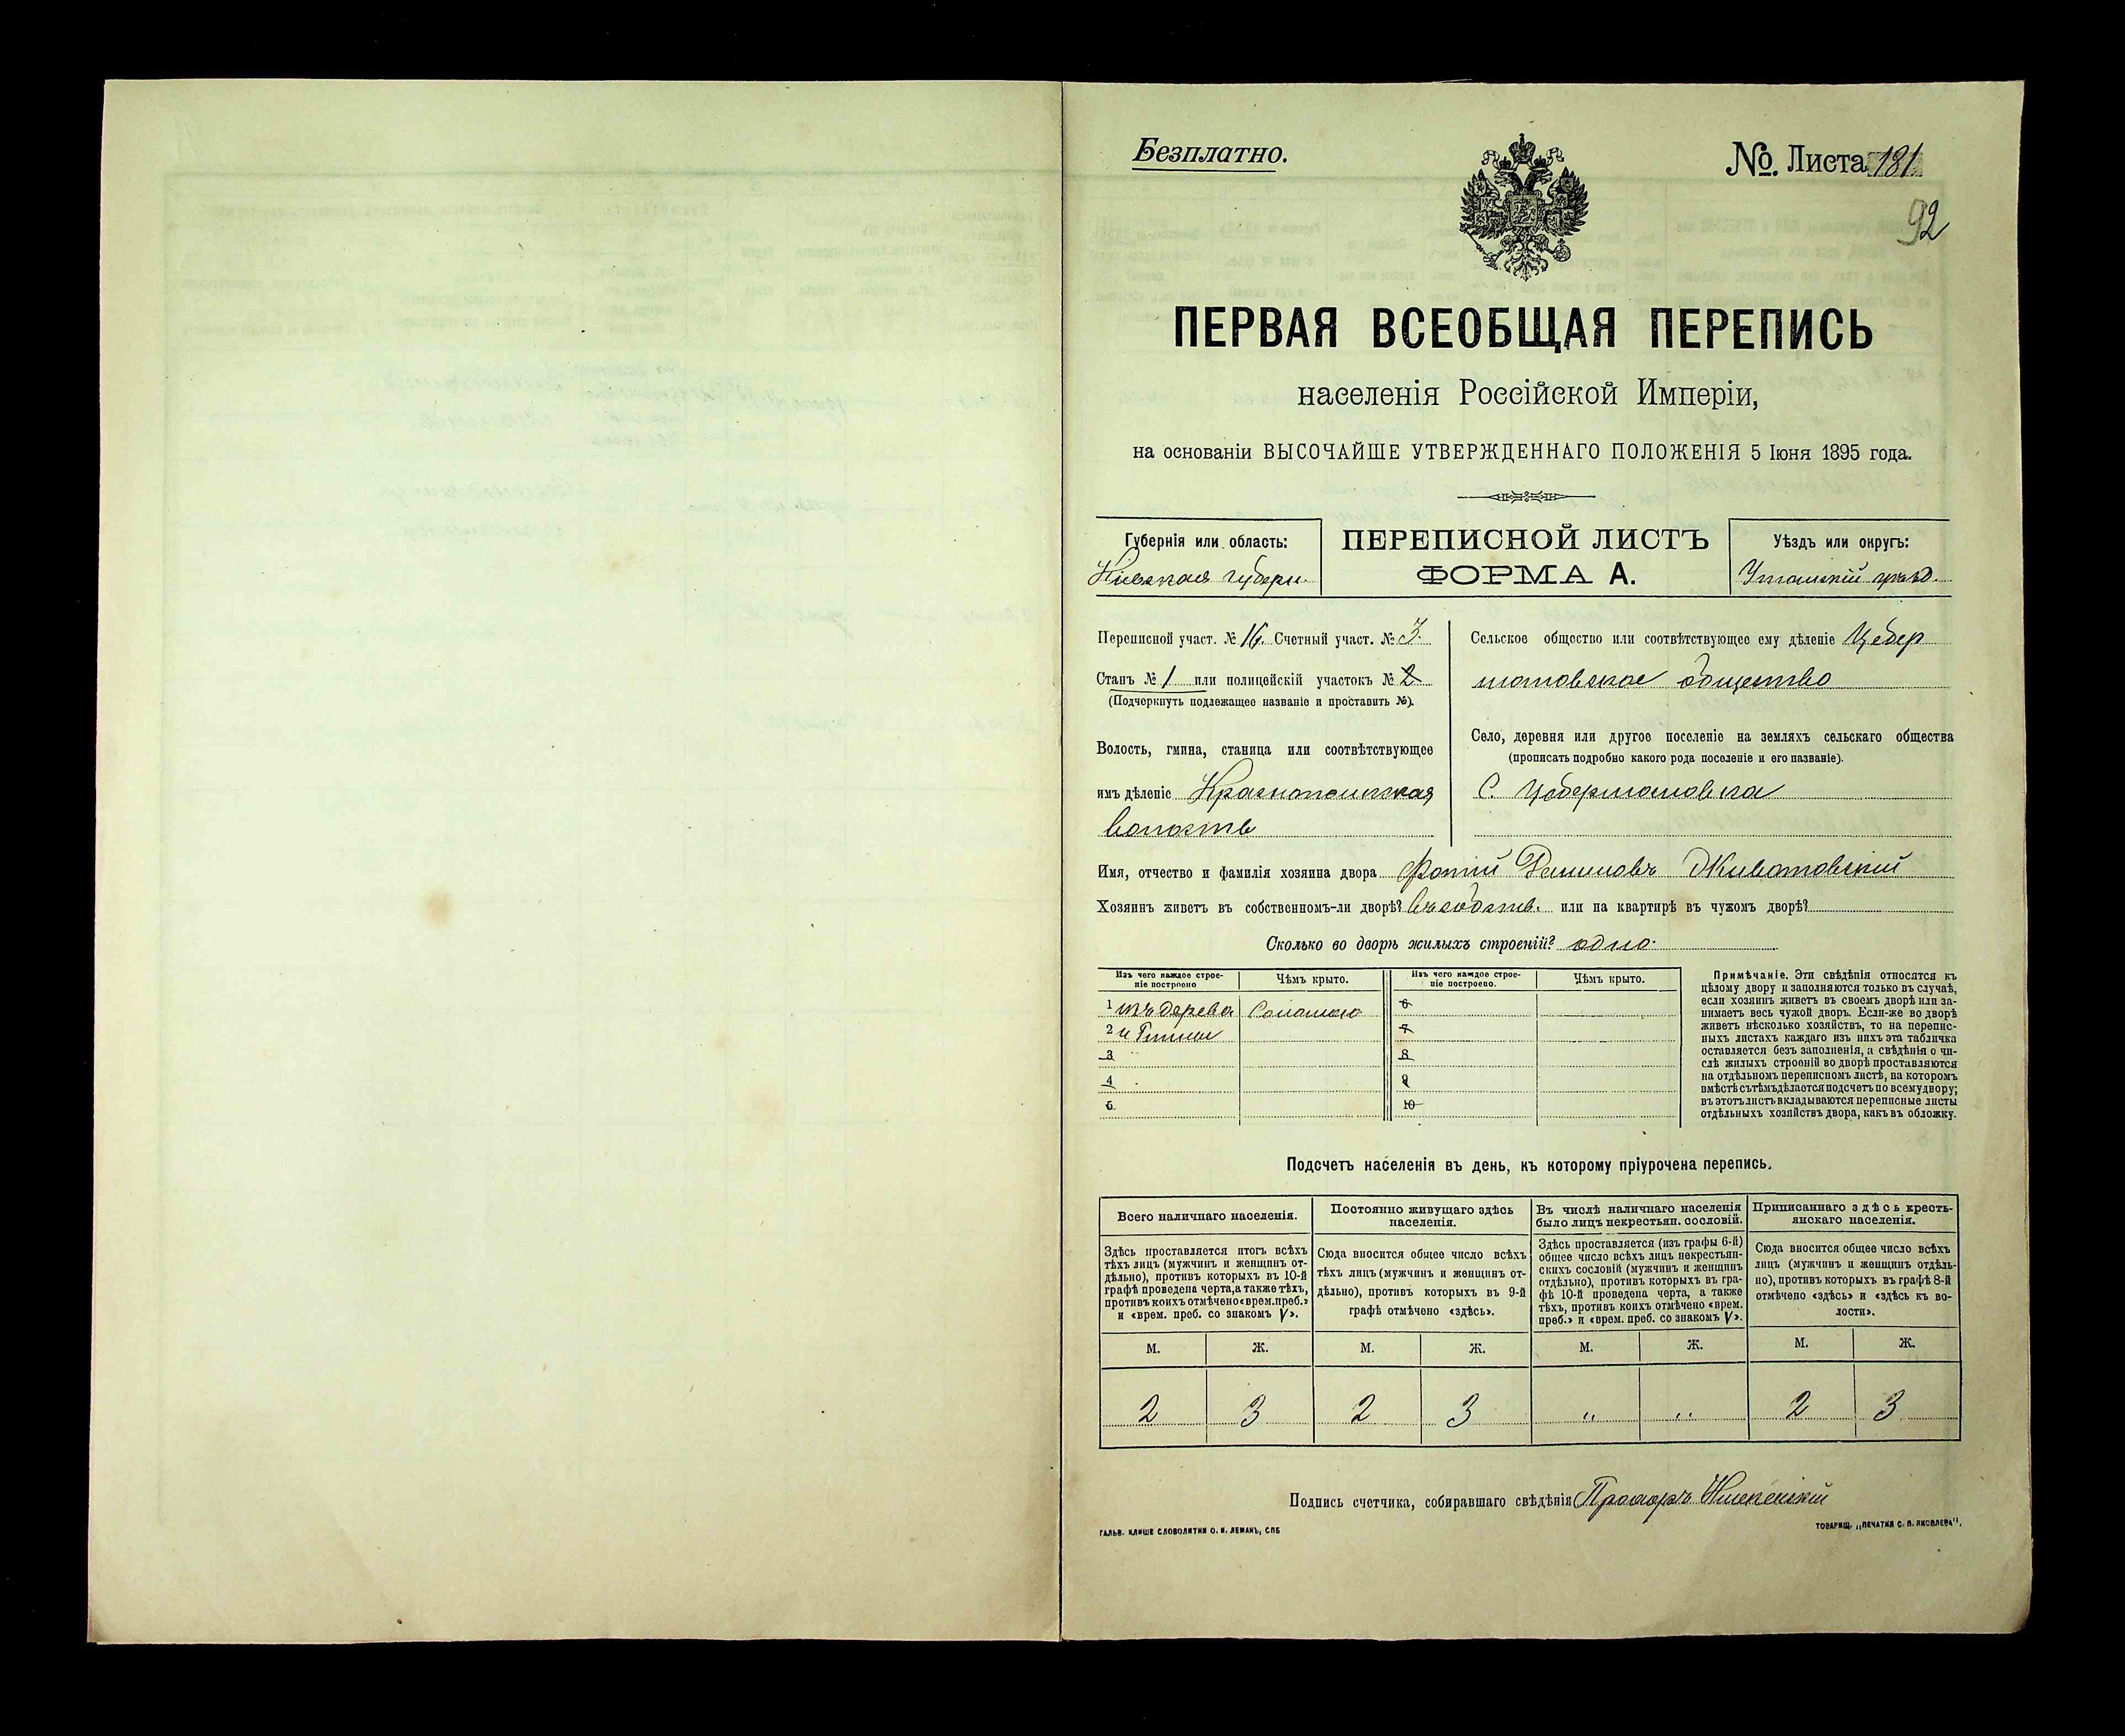 Безплатно.
№. Листа 181
92
ПЕРВАЯ ВСЕОБЩАЯ ПЕРЕПИСЬ
населенія Россійской Имперіи,
на основаніи ВЫСОЧАЙШЕ УТВЕРЖДЕННАГО ПОЛОЖЕНІЯ 5 Іюня 1895 года.
Губернія или область:
Кіевская губерн.
ПЕРЕПИСНОЙ ЛИСТЪ
ФОРМА А.
Уѣздъ или округъ:
Уманскій уѣзд.
Переписной участ. № 16. Счетный участ. № 3.
Станъ № 1 или полицейскій участокъ № 2
(Подчеркнуть подлежащее названіе и проставить №).
Волость, гмина, станица или соотвѣтствующее
имъ дѣленіе Краснопольская
волость
Сельское общество или соотвѣтствующее ему дѣленіе Цебер
мановское общество
Село, деревня или другое поселеніе на земляхъ сельскаго общества
(прописать подробно какого рода поселеніе и его названіе).
С. Цебермановка
Имя, отчество и фамилія хозяина двора Фотій Животовскій
Хозяинъ живетъ въ собственномъ-ли дворѣ? въ собств. или на квартирѣ въ чужомъ дворѣ?
Сколько во дворѣ жилыхъ строеній? одно.
Изъ чего каждое строе-
ніе построено
Чѣмъ крыто.
Изъ чего каждое строе-
ніе построено.
Чѣмъ крыто.
1 изъ дерева Соломою 6
2 и Глины 7
3 8
4 9
5. 10
Примѣчаніе. Эти свѣдѣнія относятся къ
цѣлому двору и заполняются только въ случаѣ,
если хозяинъ живетъ въ своемъ дворѣ или за-
нимаетъ весь чужой дворъ. Если-же во дворѣ
живетъ нѣсколько хозяйствъ, то на перепис-
ныхъ листахъ каждаго изъ нихъ эта табличка
оставляется безъ заполненія, а свѣдѣнія о чи-
слѣ жилыхъ строеній во дворѣ проставляются
на отдѣльномъ переписномъ листѣ, на которомъ
вмѣстѣ съ тѣмъ дѣлается подсчетъ по всему двору;
въ этотъ листъ вкладываются переписные листы
отдѣльныхъ хозяйствъ двора, какъ въ обложку.
Подсчетъ населенія въ день, къ которому пріурочена перепись.
Всего наличнаго населенія.
Здѣсь проставляется итогъ всѣхъ
тѣхъ лицъ (мужчинъ и женщинъ от-
дѣльно), противъ которыхъ въ 10-й
графѣ проведена черта, а также тѣхъ,
противъ коихъ отмѣчено «врем. преб.»
и «врем. преб. со знакомъ V».
Постоянно живущаго здѣсь
населенія.
Сюда вносится общее число всѣхъ
тѣхъ лицъ (мужчинъ и женщинъ от-
дѣльно), противъ которыхъ въ 9-й
графѣ отмѣчено «здѣсь».
Въ числѣ наличнаго населенія
было лицъ некрестьян. сословій.
Здѣсь проставляется (изъ графы 6-й)
общее число всѣхъ лицъ некрестьян-
скихъ сословій (мужчинъ и женщинъ
отдѣльно), противъ которыхъ въ гра-
фѣ 10-й проведена черта, а также
тѣхъ, противъ коихъ отмѣчено «врем.
преб.» и «врем. преб. со знакомъ V».
Приписаннаго здѣсь кресть-
янскаго населенія.
Сюда вносится общее число всѣхъ
лицъ (мужчинъ и женщинъ отдѣль-
но), противъ которыхъ въ графѣ 8-й
отмѣчено «здѣсь» и «здѣсь къ во-
лости».
М. Ж. М. Ж. М. Ж. М. Ж.
2 3 2 3 „ „ 2 3
Подпись счетчика, собиравшаго свѣдѣнія Прохоръ
ГАЛЬВ. КЛИШЕ СЛОВОЛИТНИ О. И. ЛЕМАНЪ, СПБ
ТОВАРИЩ. „ПЕЧАТНЯ С. П. ЯКОВЛЕВА".